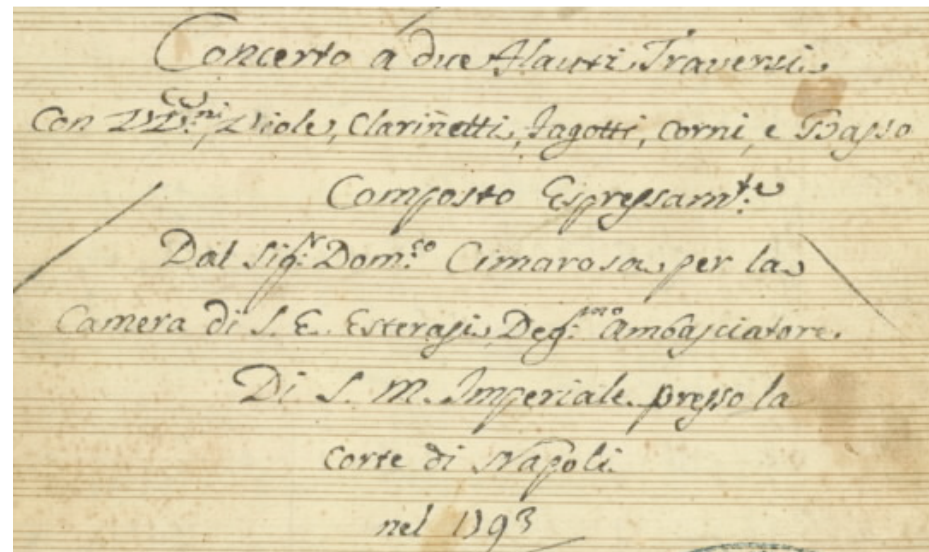 Concerto a due Flauti Traversi
Con VV.ni, Viole, Clarinetti, Fagotti, Corni, e Basso
Composto Espressam.te
Dal Sig.r Dom.co Cimarosa per la
Camera di S. E. Esterasi, Deg.mo Ambasciatore
Di S. M. Imperiale presso la
Corte di Napoli
nel 1793